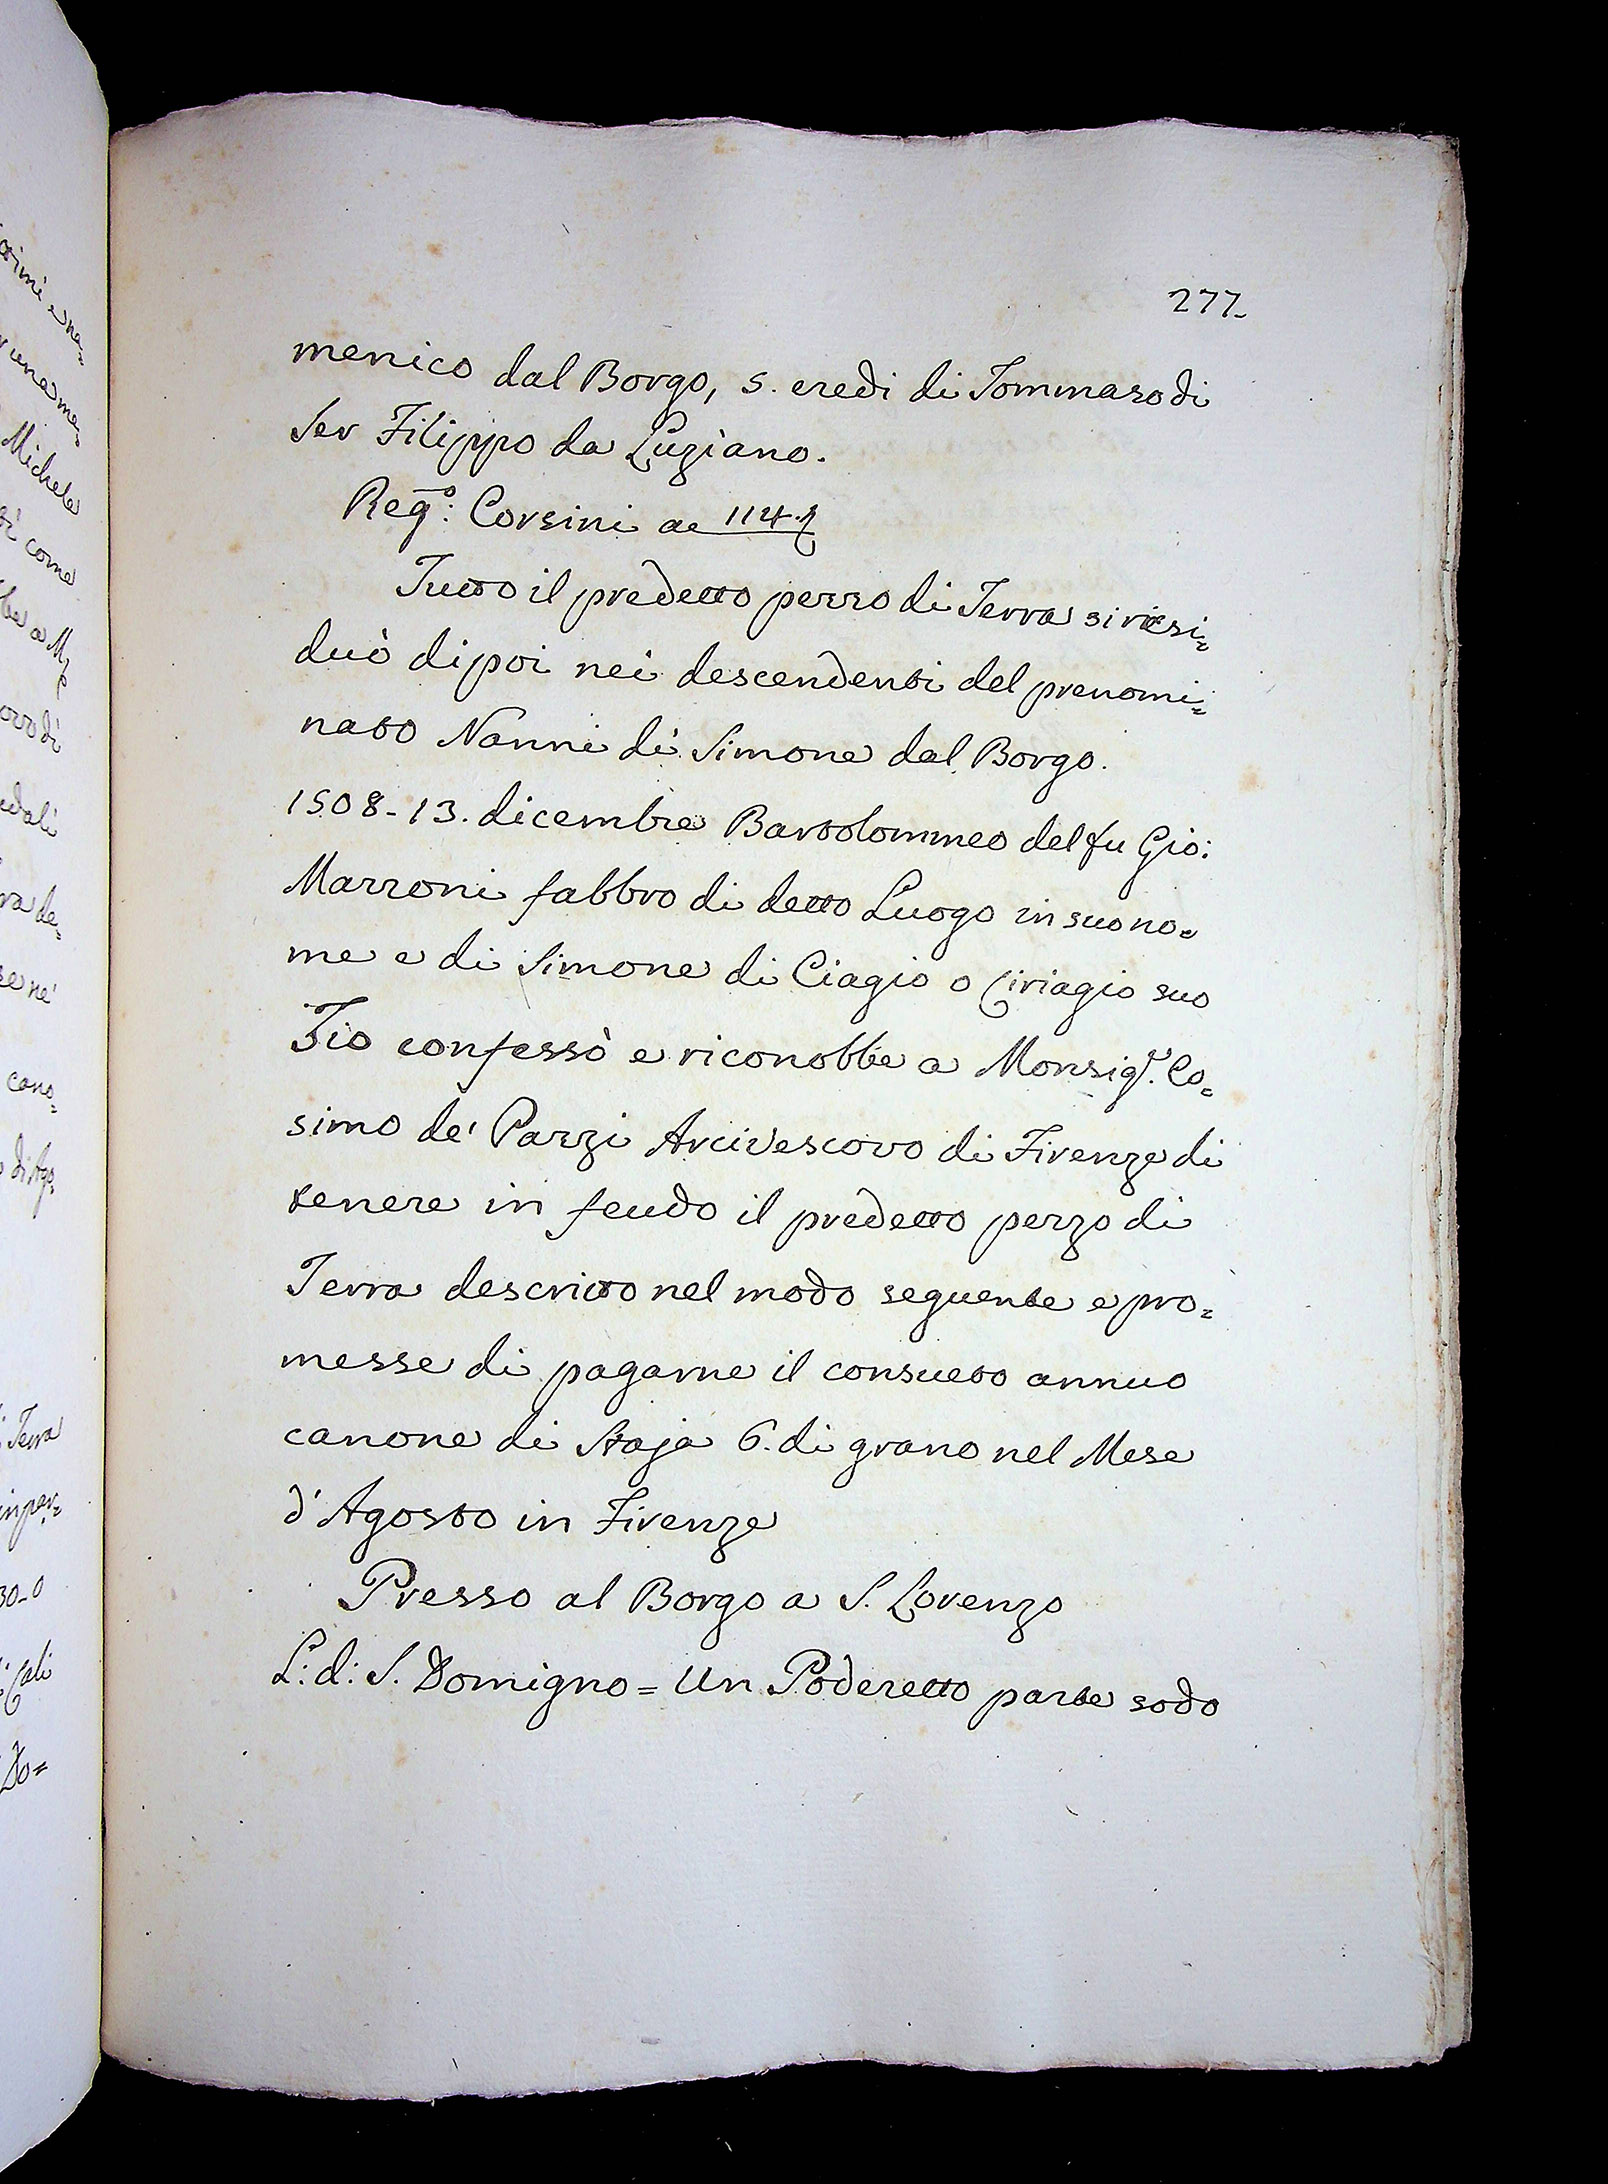 277.
menico dal Borgo, 5. eredi di Tommaso di
Ser Filippo da Luziano.
Reg.º: Corsini a 114.
Tutto il predetto pezzo di Terra si resi=
duò dipoi nei descendenti del prenomi=
nato Nanni di Simone dal Borgo.
1508-13. dicembre Bartolommeo del fu Gio:
Mazzoni fabbro di detto Luogo in suo no=
me e di Simone di Ciagio o Ciriagio suo
Zio confessò e riconobbe a Monsigr. Co=
simo de' Pazzi Arcivescovo di Firenze di
tenere in feudo il predetto pezzo di
Terra descritto nel modo seguente e pro=
messe di pagarne il consueto annuo
canone di Staja 6. di grano nel Mese
d'Agosto in Firenze
Presso al Borgo a S. Lorenzo
L: d: S. Domigno = Un Poderetto parte sodo
Michele
come
cano=
Terra
30-0
Do=